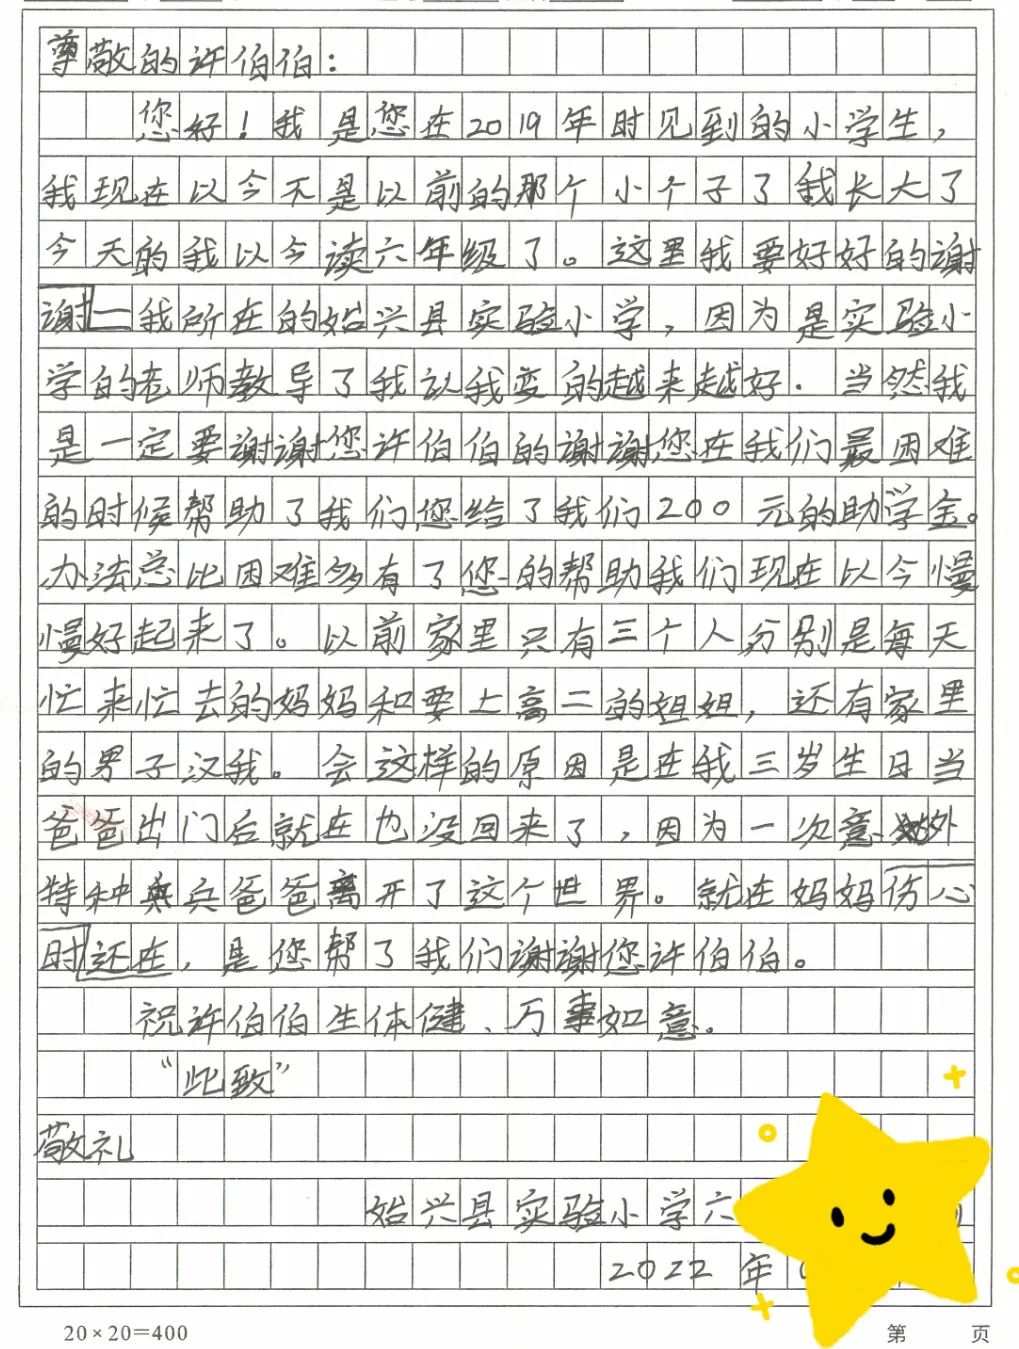 尊敬的许伯伯：
您好！我是您在2019年时见到的小学生，
我现在以今不是以前的那个小个子了我长大了
今天的我以今读六年级了。这里我要好好的谢
谢我所在的始兴县实验小学，因为是实验小
学的老师教导了我认我变的越来越好．当然我
是一定要谢谢您许伯伯的谢谢您在我们最困难
的时候帮助了我们您给了我们200元的助学金。
办法总比困难多有了您的帮助我们现在以今慢
慢好起来了。以前家里只有三个人分别是每天
忙来忙去的妈妈和要上高二的姐姐，还有家里
的男子汉我。会这样的原因是在我三岁生日当
爸爸出门后就在也没回来了，因为一次意外
特种兵爸爸离开了这个世界。就在妈妈伤心
时还在，是您帮了我们谢谢您许伯伯。
祝许伯伯生体健、万事如意。
“此致”
敬礼
始兴县实验小学六
2022年
20×20=400 第 页